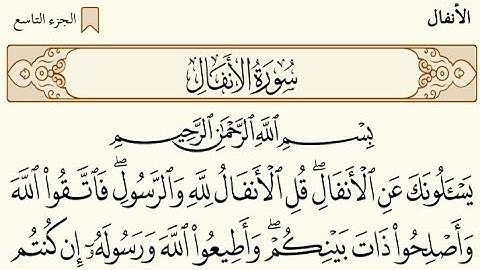 الأنفال
الجزء التاسع
سُورَةُ الأَنفَالِ
بِسْمِ اللَّهِ الرَّحْمَٰنِ الرَّحِيمِ
يَسْـَٔلُونَكَ عَنِ ٱلْأَنفَالِۖ قُلِ ٱلْأَنفَالُ لِلَّهِ وَٱلرَّسُولِۖ فَٱتَّقُوا۟ ٱللَّهَ
وَأَصْلِحُوا۟ ذَاتَ بَيْنِكُمْۖ وَأَطِيعُوا۟ ٱللَّهَ وَرَسُولَهُۥٓ إِن كُنتُم